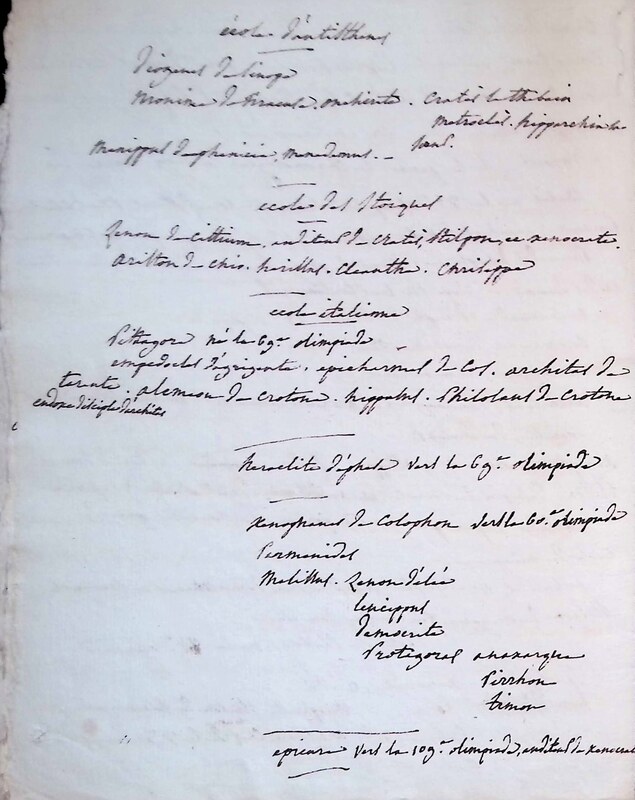 école d'antisthenes
diogenes de sinope
monime de siracuse. onesicrite. cratès le thebain
metroclès. hipparchia sa
soeur.
menippus de phenicie, menedemus. -
ecole des stoiques
zenon de cittium, auditeur de cratès, stilpon, et xenocrate.
ariston de chio. herillus. cleanthe. chrisippe
ecole italienne
Pithagore né la 69e olimpiade
empedocles d'agrigente. epicharmus de cos. architas de
tarente. alcmeon de crotone. hippasus. Philolaus de crotone
eudoxe disciple d'architas
heraclite d'ephese vers la 69e olimpiade
xenophanes de Colophon vers la 60e olimpiade
Parmenides
Melissus. zenon d'élée
leucippus
democrite
Protagoras anaxarque
Pirrhon
timon
epicure vers la 109e olimpiade, auditeur de xenocrate